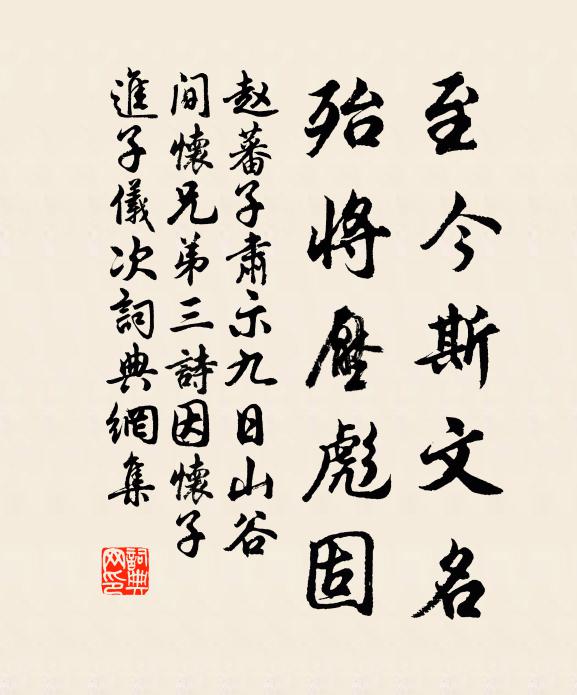 至今斯文名
殆将壓彪固
赵蕃子肃示九日山谷
间懷兄弟三詩因懷子
進子儀次詞典網集
詞典网印